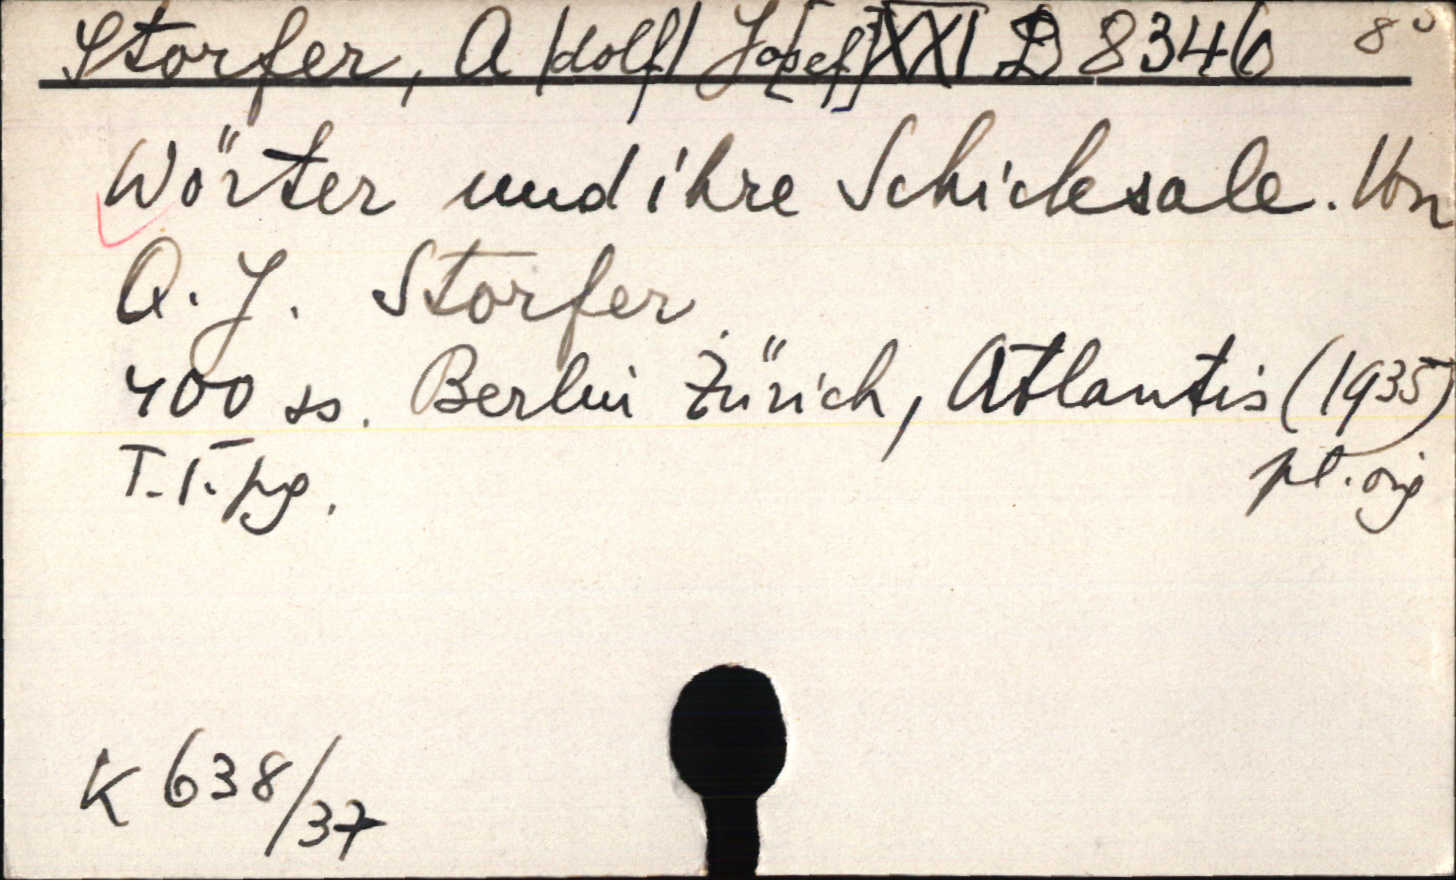 Storfer, A/dolf/ Jo[zef] XXI D 8346 8°
Wörter und ihre Schicksale. Von
A. J. Storfer.
400 ss. Berlin Zürich, Atlantis (1935)
T. T. pg. pł. oryg
K 638/37